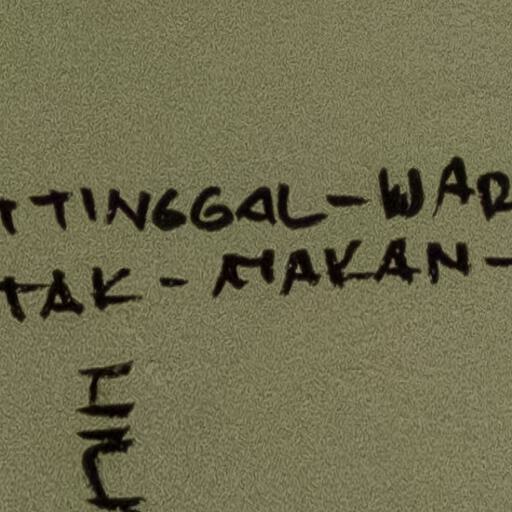 T TINGGAL-WAR
TAK - MAKAN-